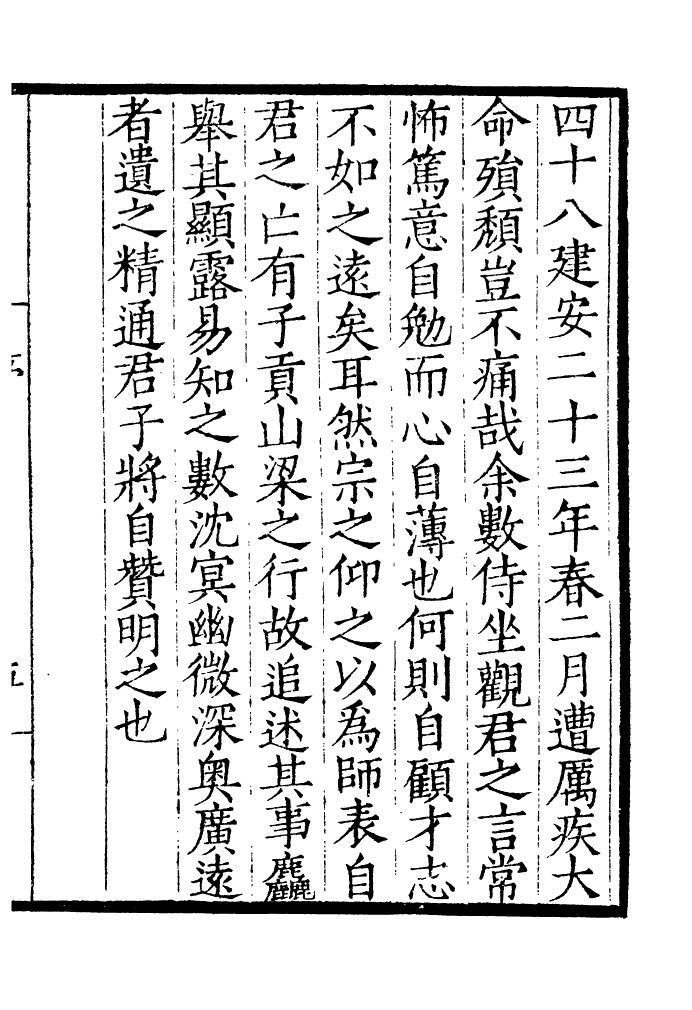 四十八建安二十三年春二月遭厲疾大
命殞頹豈不痛哉余數侍坐觀君之言常
怖篤意自勉而心自薄也何則自顧才志
不如之遠矣耳然宗之仰之以爲師表自
君之亡有子貢山梁之行故追述其事麤
舉其顯露易知之數沈冥幽微深奧廣遠
者遺之精通君子將自贊明之也
五